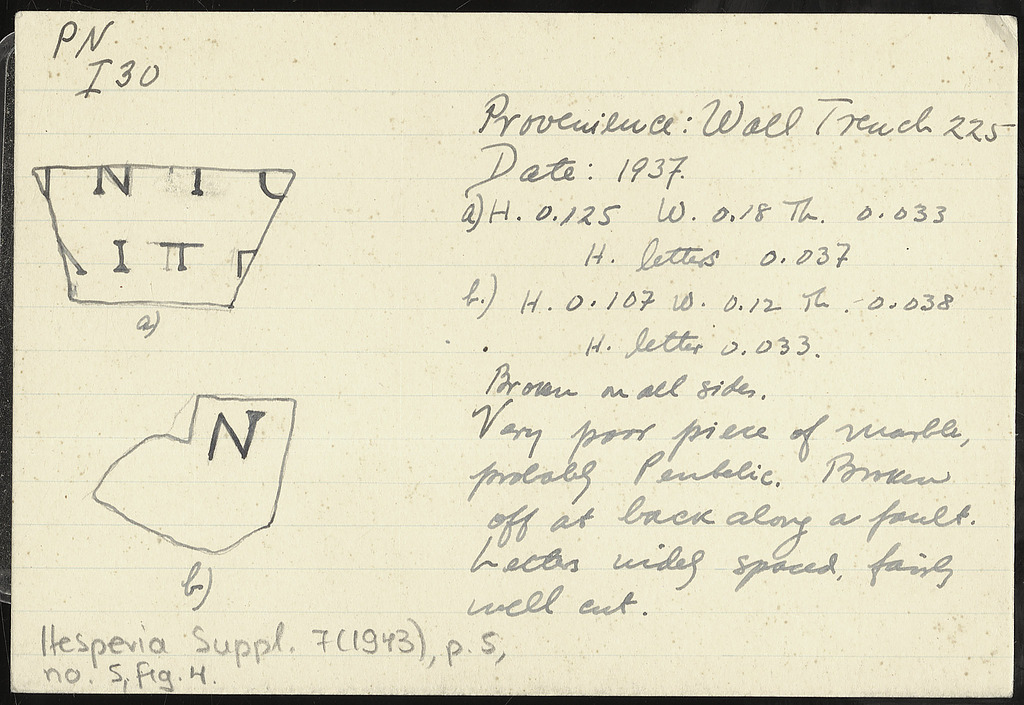 PN
I 30
Provenience: Wall Trench 225
Date: 1937.
a) H. 0.125 W. 0.18 Th. 0.033
H. letters 0.037
b.) H. 0.107 W. 0.12 Th. 0.038
H. letter 0.033.
Broken on all sides.
Very poor piece of marble,
probably Pentelic. Broken
off at back along a fault.
Letters widely spaced, fairly
well cut.
Ν Ι
Ι Π Γ
a)
N
b)
Hesperia Suppl. 7 (1943), p. 5,
no. 5, fig. 4.